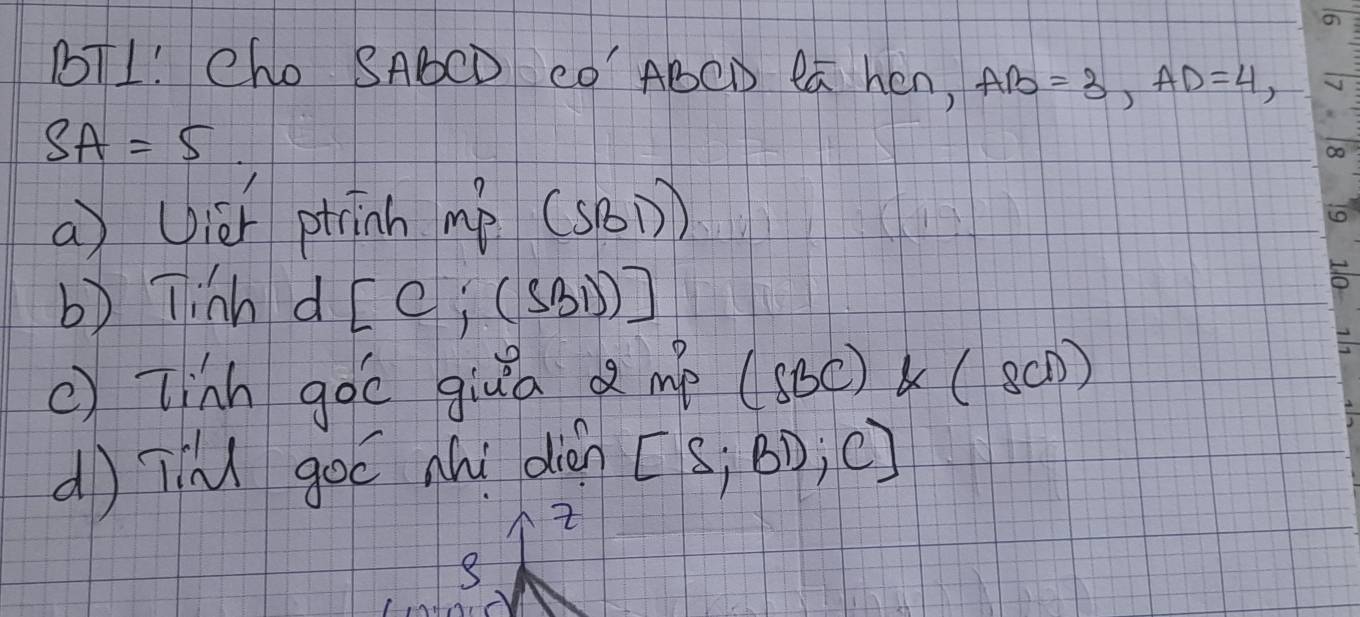 BT1: Cho SABCD có ABCD là hcn, AB = 3, AD = 4,
SA = 5.
a) Viết ptrình mp (SBD)
b) Tính d [C; (SBD)]
c) Tính góc giữa 2 mp (SBC) & (SCD)
d) Tính góc nhị diện [S; BD; C]
z
S
6 7 8 9 10 11